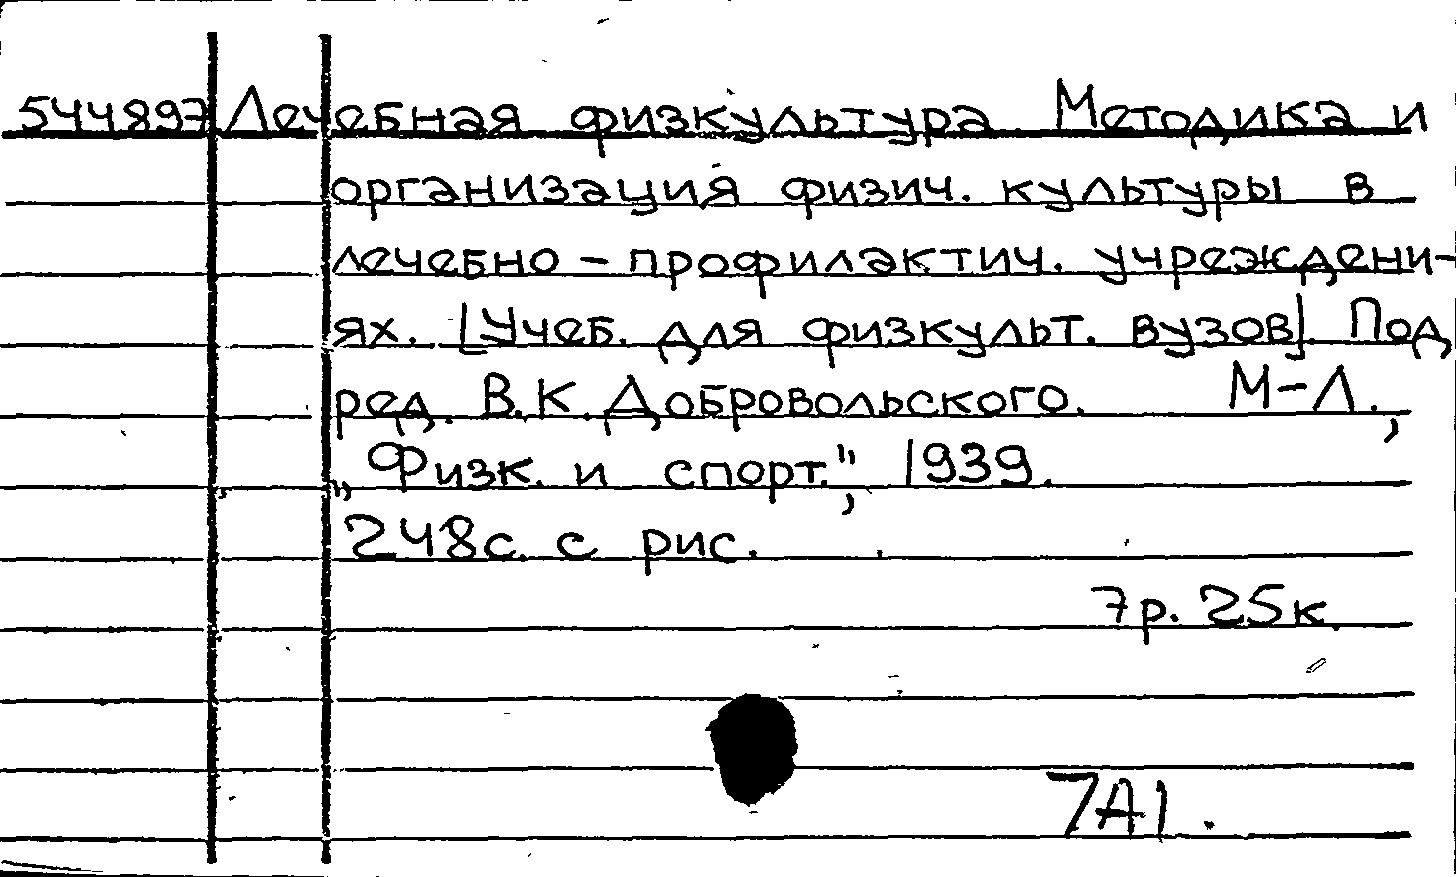 544897 Лечебная физкультура. Методика и
организация физич. культуры в
лечебно-профилактич. учреждени-
ях. [Учеб. для физкульт. вузов]. Под
ред. В.К. Добровольского. М-Л.,
„Физк. и спорт.", 1939.
248с. с рис.
7р. 25к.
7А1.